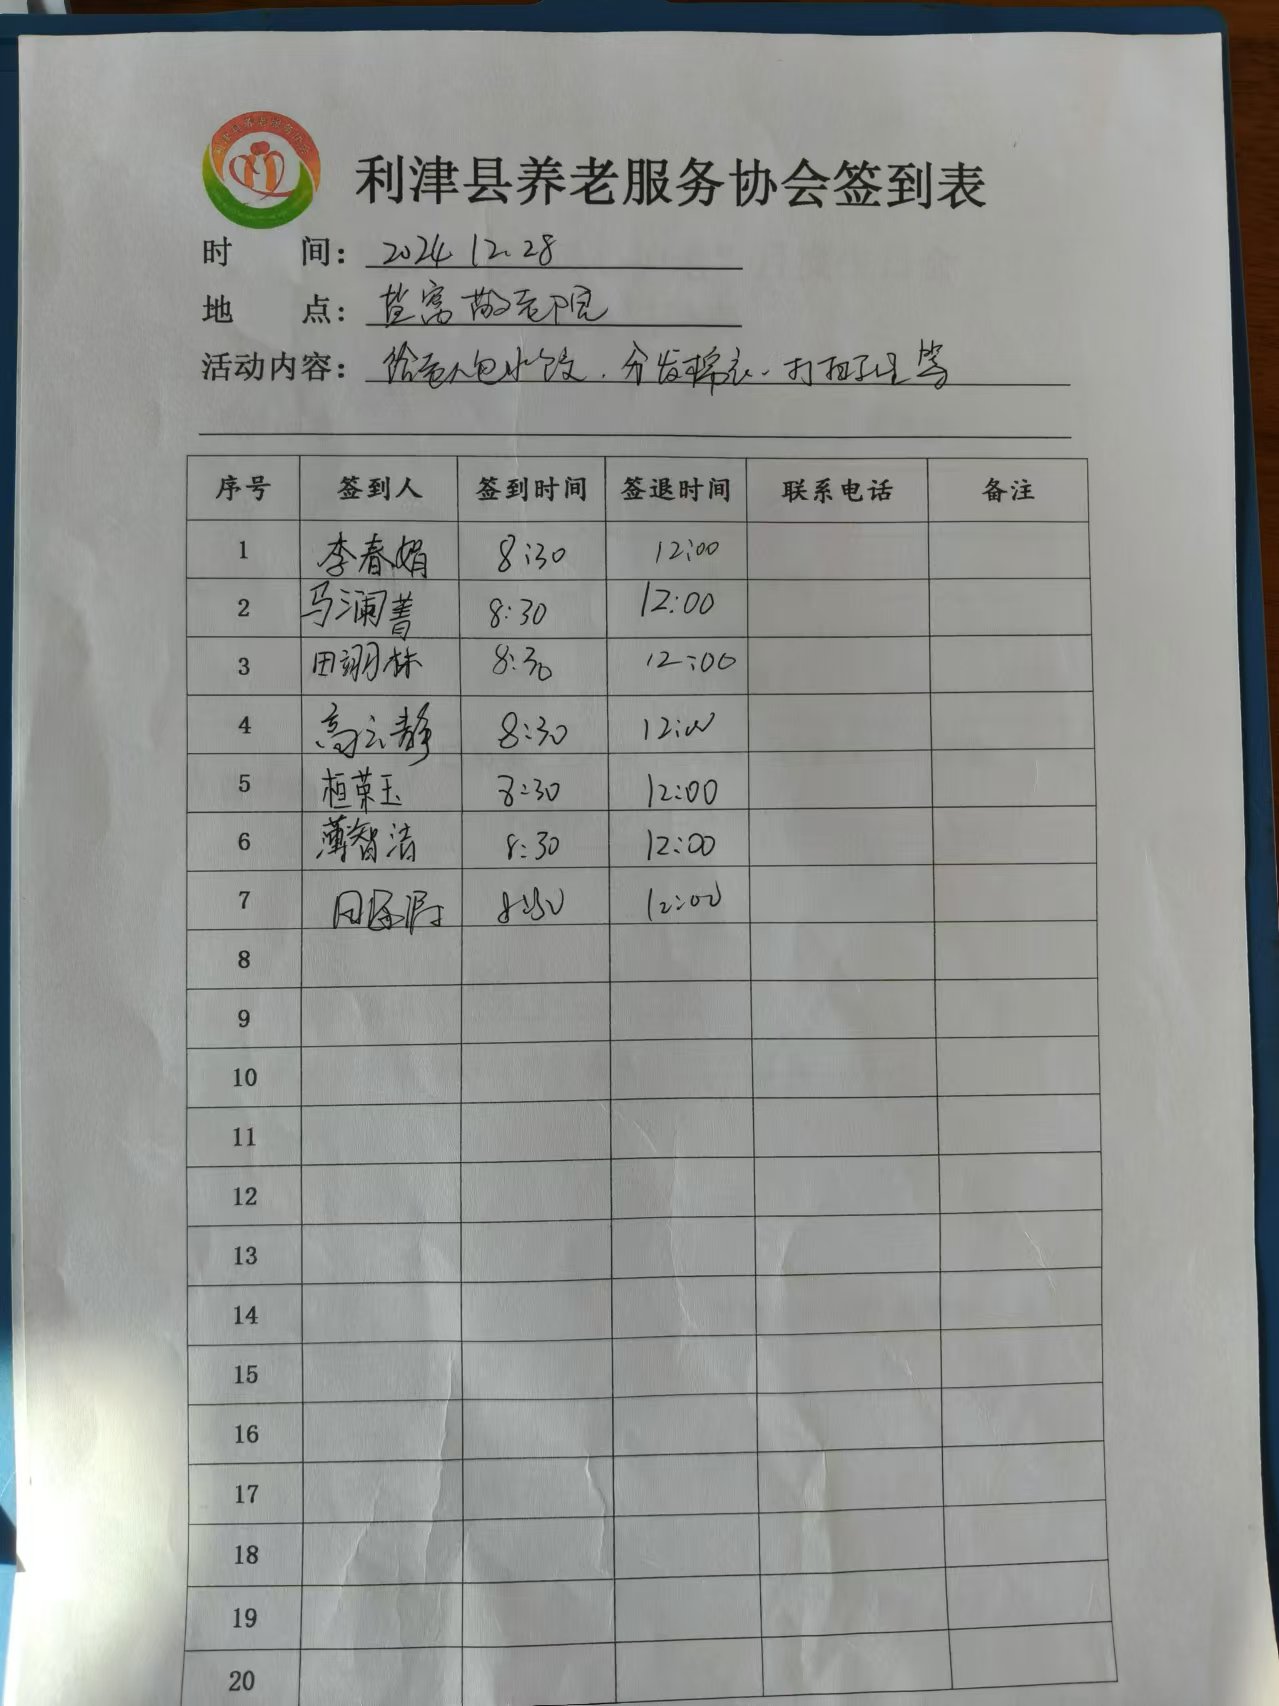 利津县养老服务协会
利津县养老服务协会签到表
时 间： 2024.12.28
地 点： 盐窝敬老院
活动内容： 给老人包水饺、分发棉衣、打扫卫生等
序号 签到人 签到时间 签退时间 联系电话 备注
1 李春娟 8:30 12:00
2 马澜菁 8:30 12:00
3 田翊林 8:30 12:00
4 高云静 8:30 12:00
5 桓荣玉 8:30 12:00
6 薄智洁 8:30 12:00
7 8:30 12:00
8
9
10
11
12
13
14
15
16
17
18
19
20